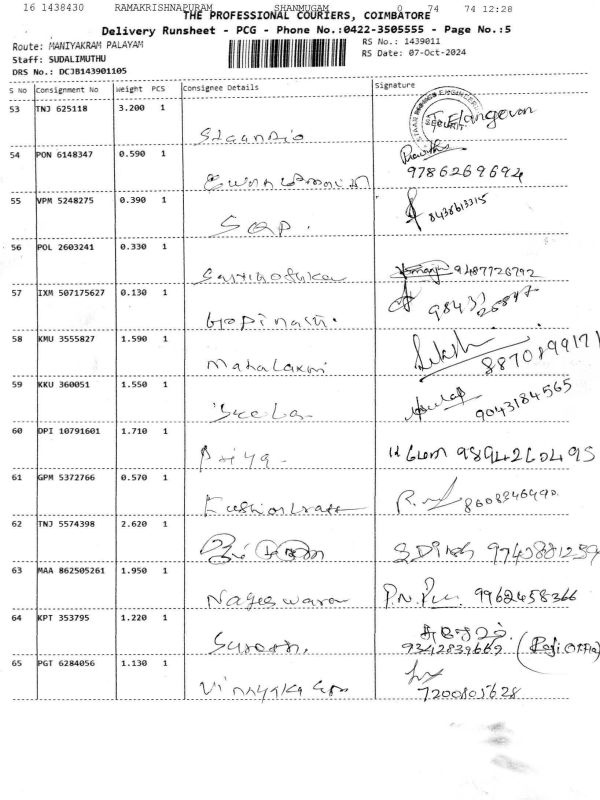 16 1438430 RAMAKRISHNAPURAM SHANMUGAM 0 74 74 12:28
THE PROFESSIONAL COURIERS, COIMBATORE
Delivery Runsheet - PCG - Phone No.:0422-3505555 - Page No.:5
Route: MANIYAKRAM PALAYAM
RS No.: 1439011
Staff: SUDALIMUTHU
RS Date: 07-Oct-2024
DRS No.: DCJB143901105
S No Consignment No Weight PCS Consignee Details Signature
53 TNJ 625118 3.200 1 T. Elangovan
54 PON 6148347 0.590 1 9786269694
55 VPM 5248275 0.390 1 8438613315
56 POL 2603241 0.330 1 9487726792
57 IXM 507175627 0.130 1 Gopinath.
58 KMU 3555827 1.590 1 Mahalaxmi 8870899171
59 KKU 360051 1.550 1 9043184565
60 DPI 10791601 1.710 1 Priya 9894260495
61 GPM 5372766 0.570 1 8608946490
62 TNJ 5574398 2.620 1 S Dinesh 9743881259
63 MAA 862505261 1.950 1 Nageswara 9962458366
64 KPT 353795 1.220 1 Suresh. 9342839669
65 PGT 6284056 1.130 1 7200805628